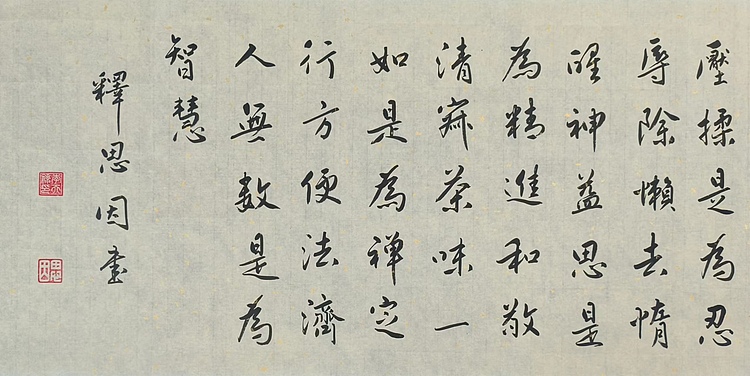 壓揉是為忍
辱除懶去惰
醒神益思是
為精進和敬
清寂茶味一
如是為禪定
行方便法濟
人無数是為
智慧
釋思因書